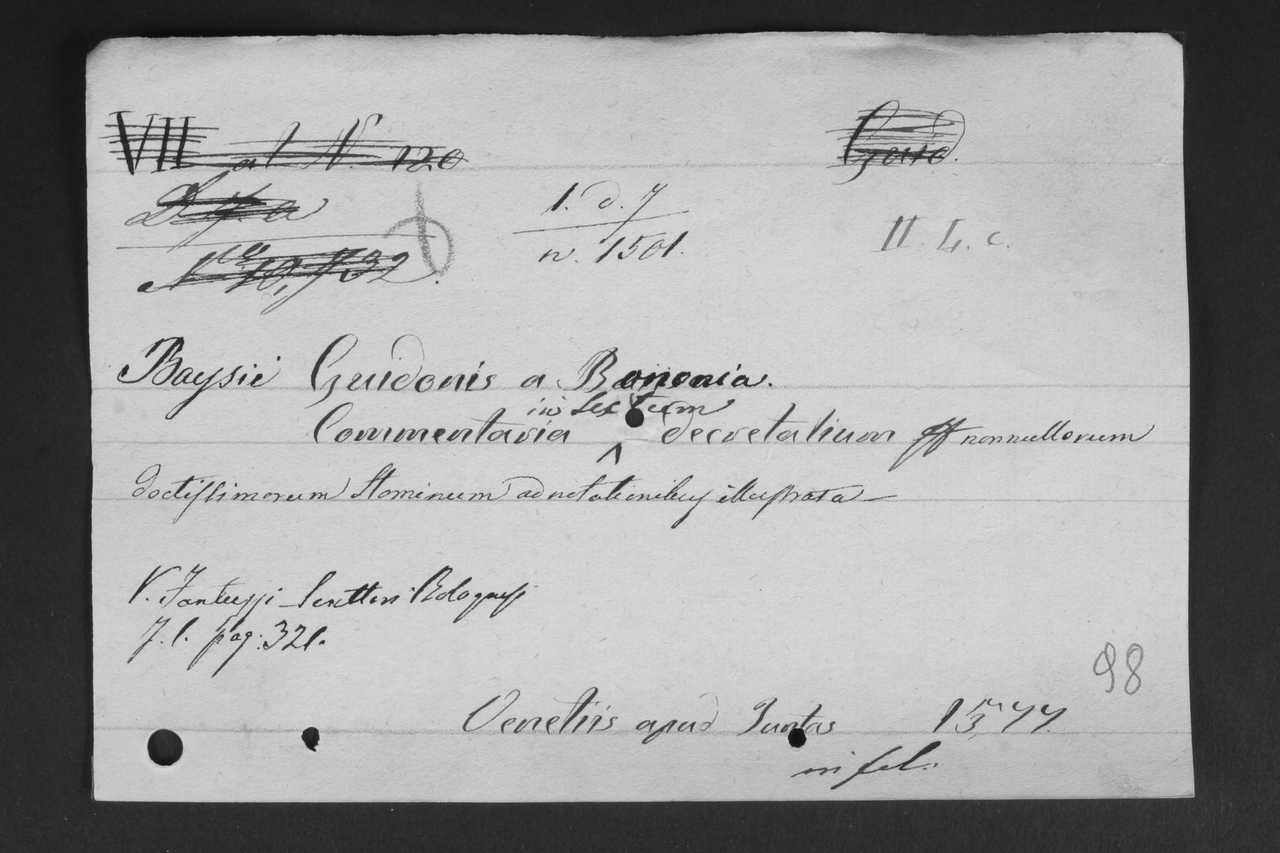 VII al N. 120
1. d. 7
n. 1501.
II. L. c.
Baysii Guidonis a Bononia.
in sextum
Commentaria decretalium nonnullorum
doctissimorum Hominum adnotationibus illustrata —
V. Fantuzzi Scrittori Bolognesi
T. 1. pag: 321.
98
Venetiis apud Juntas 1577.
in fol.